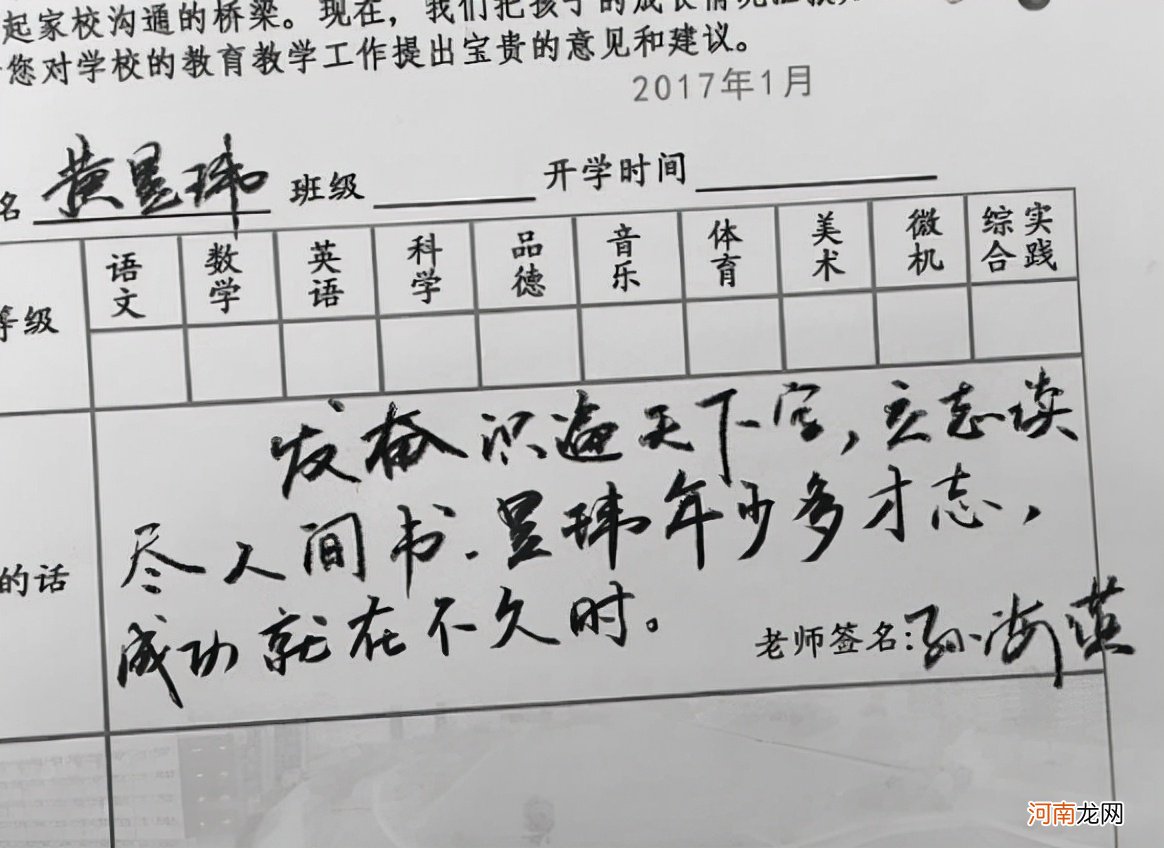 起家校沟通的桥梁。现在，我们把孩子的成长情况汇报
您对学校的教育教学工作提出宝贵的意见和建议。
2017年1月
名 黄昱玮 班级 开学时间
等级 语文 数学 英语 科学 品德 音乐 体育 美术 微机 综合实践
发奋识遍天下字，立志读
尽人间书.昱玮年少多才志，
成功就在不久时。
的话
老师签名:孙海英
河南龙网